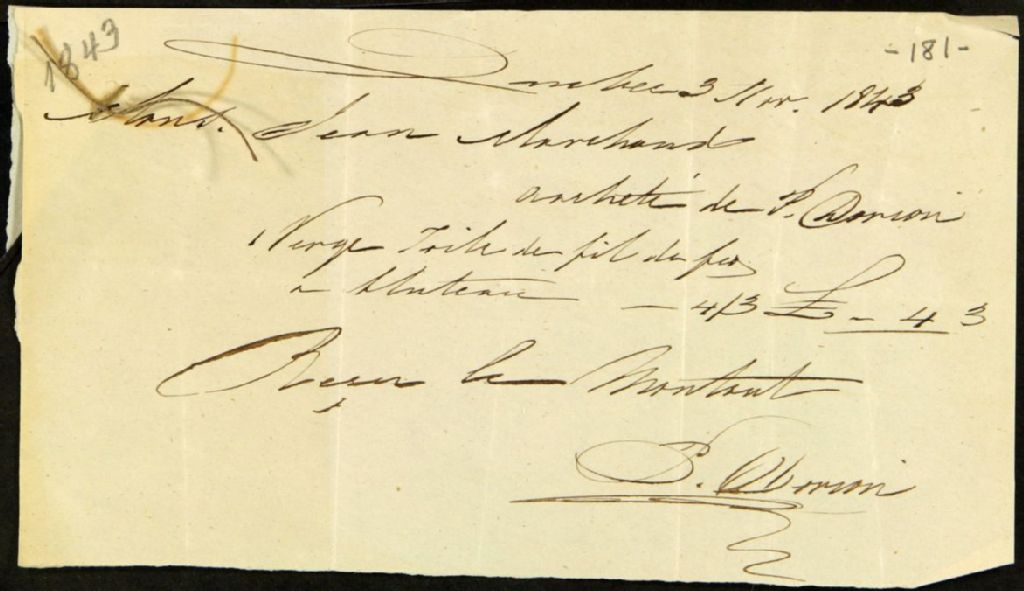 1843
-181-
Quebec 3 Nov. 1843
Mons. Jean Marchand
acheté de P. Dorion
Verge Toile de fil de fer
a bluteau — 4/3 £ - 4 3
Reçu le Montant
P. Dorion